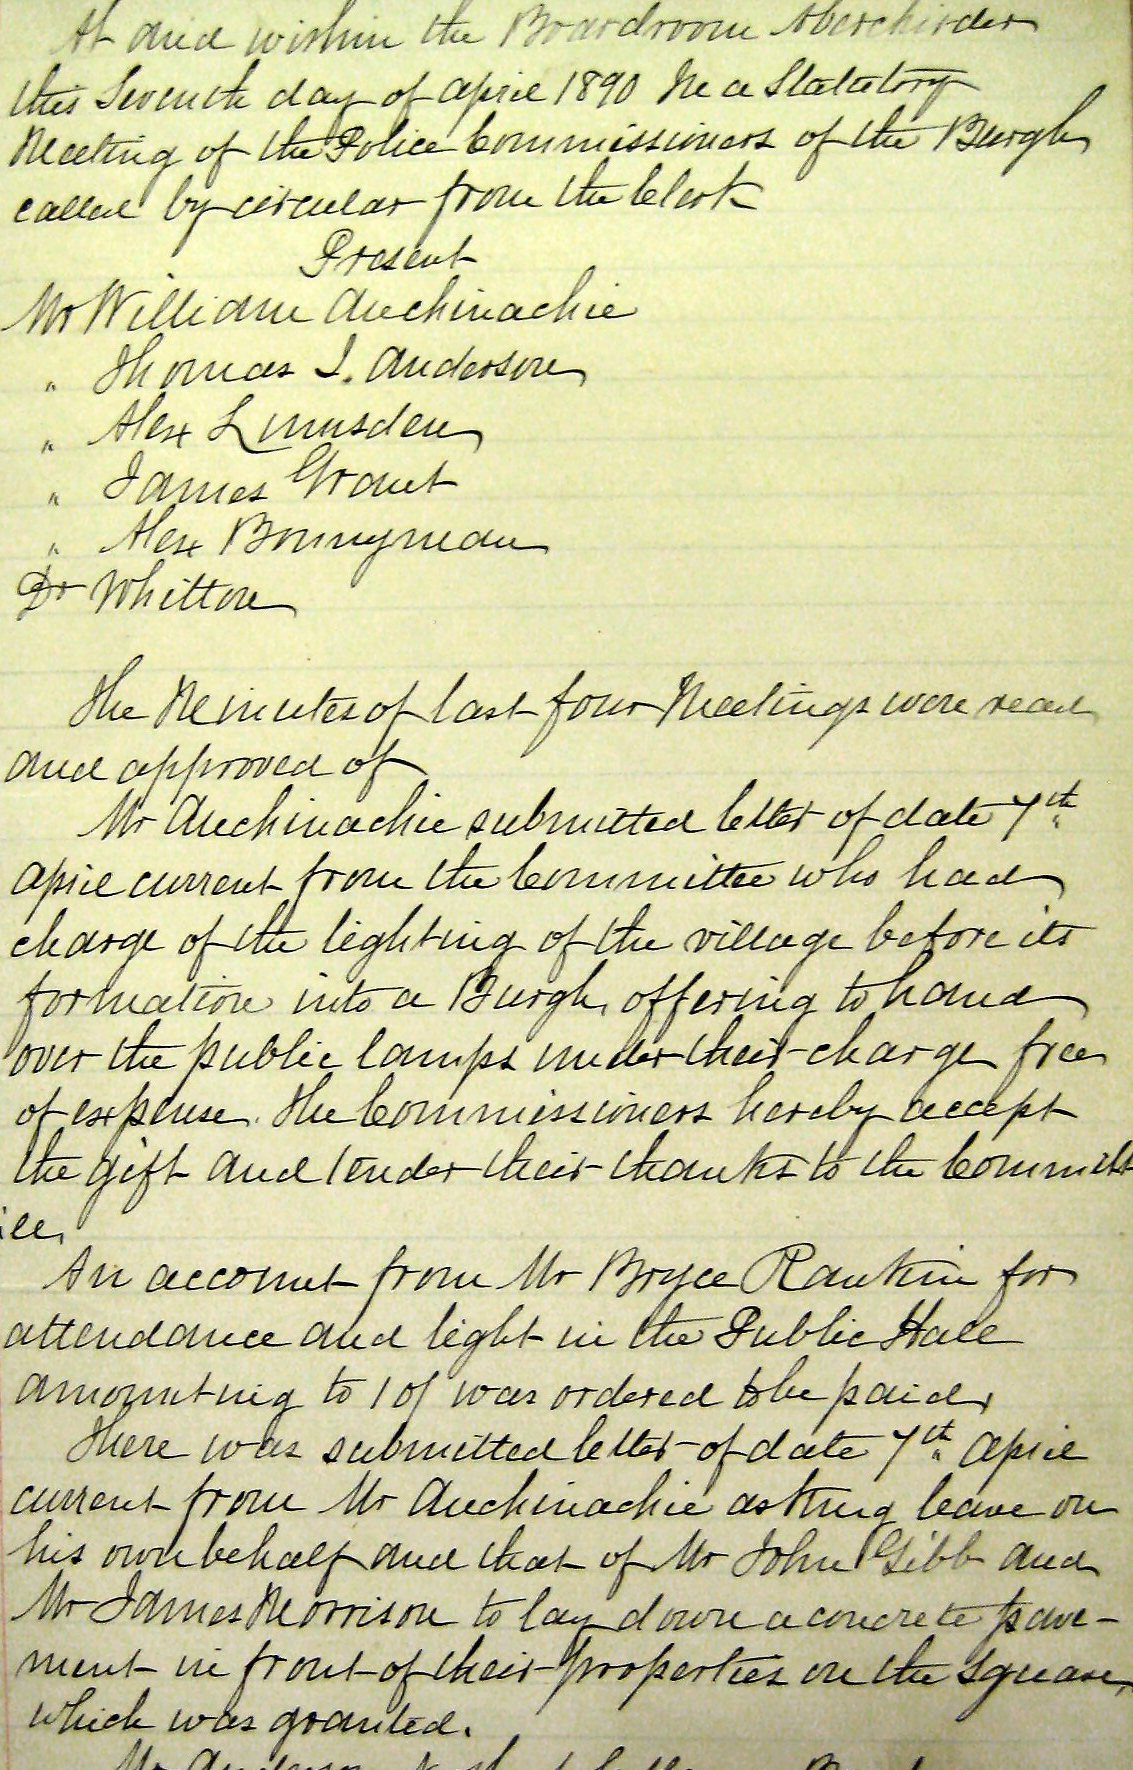 At and within the Boardroom Aberchirder
this Seventh day of April 1890 In a Statutory
Meeting of the Police Commissioners of the Burgh
called by circular from the Clerk
Present
Mr William Auchinachie
" Thomas I. Anderson
" Alex Lumsden
" James Grant
" Alex Bonnyman
Dr Whitton
The Minutes of last four Meetings were read
and approved of
Mr Auchinachie submitted letter of date 7th
April current from the Committee who had
charge of the lighting of the village before its
formation into a Burgh, offering to hand
over the public lamps under their charge free
of expense. The Commissioners hereby accept
the gift and tender their thanks to the Committ
ee.
An account from Mr Bryce Rankin for
attendance and light in the Public Hall
amounting to 10/ was ordered to be paid.
There was submitted letter of date 7th April
current from Mr Auchinachie asking leave on
his own behalf and that of Mr John Gibb and
Mr James Morrison to lay down a concrete pave-
ment in front of their properties on the Square,
which was granted.
Mr